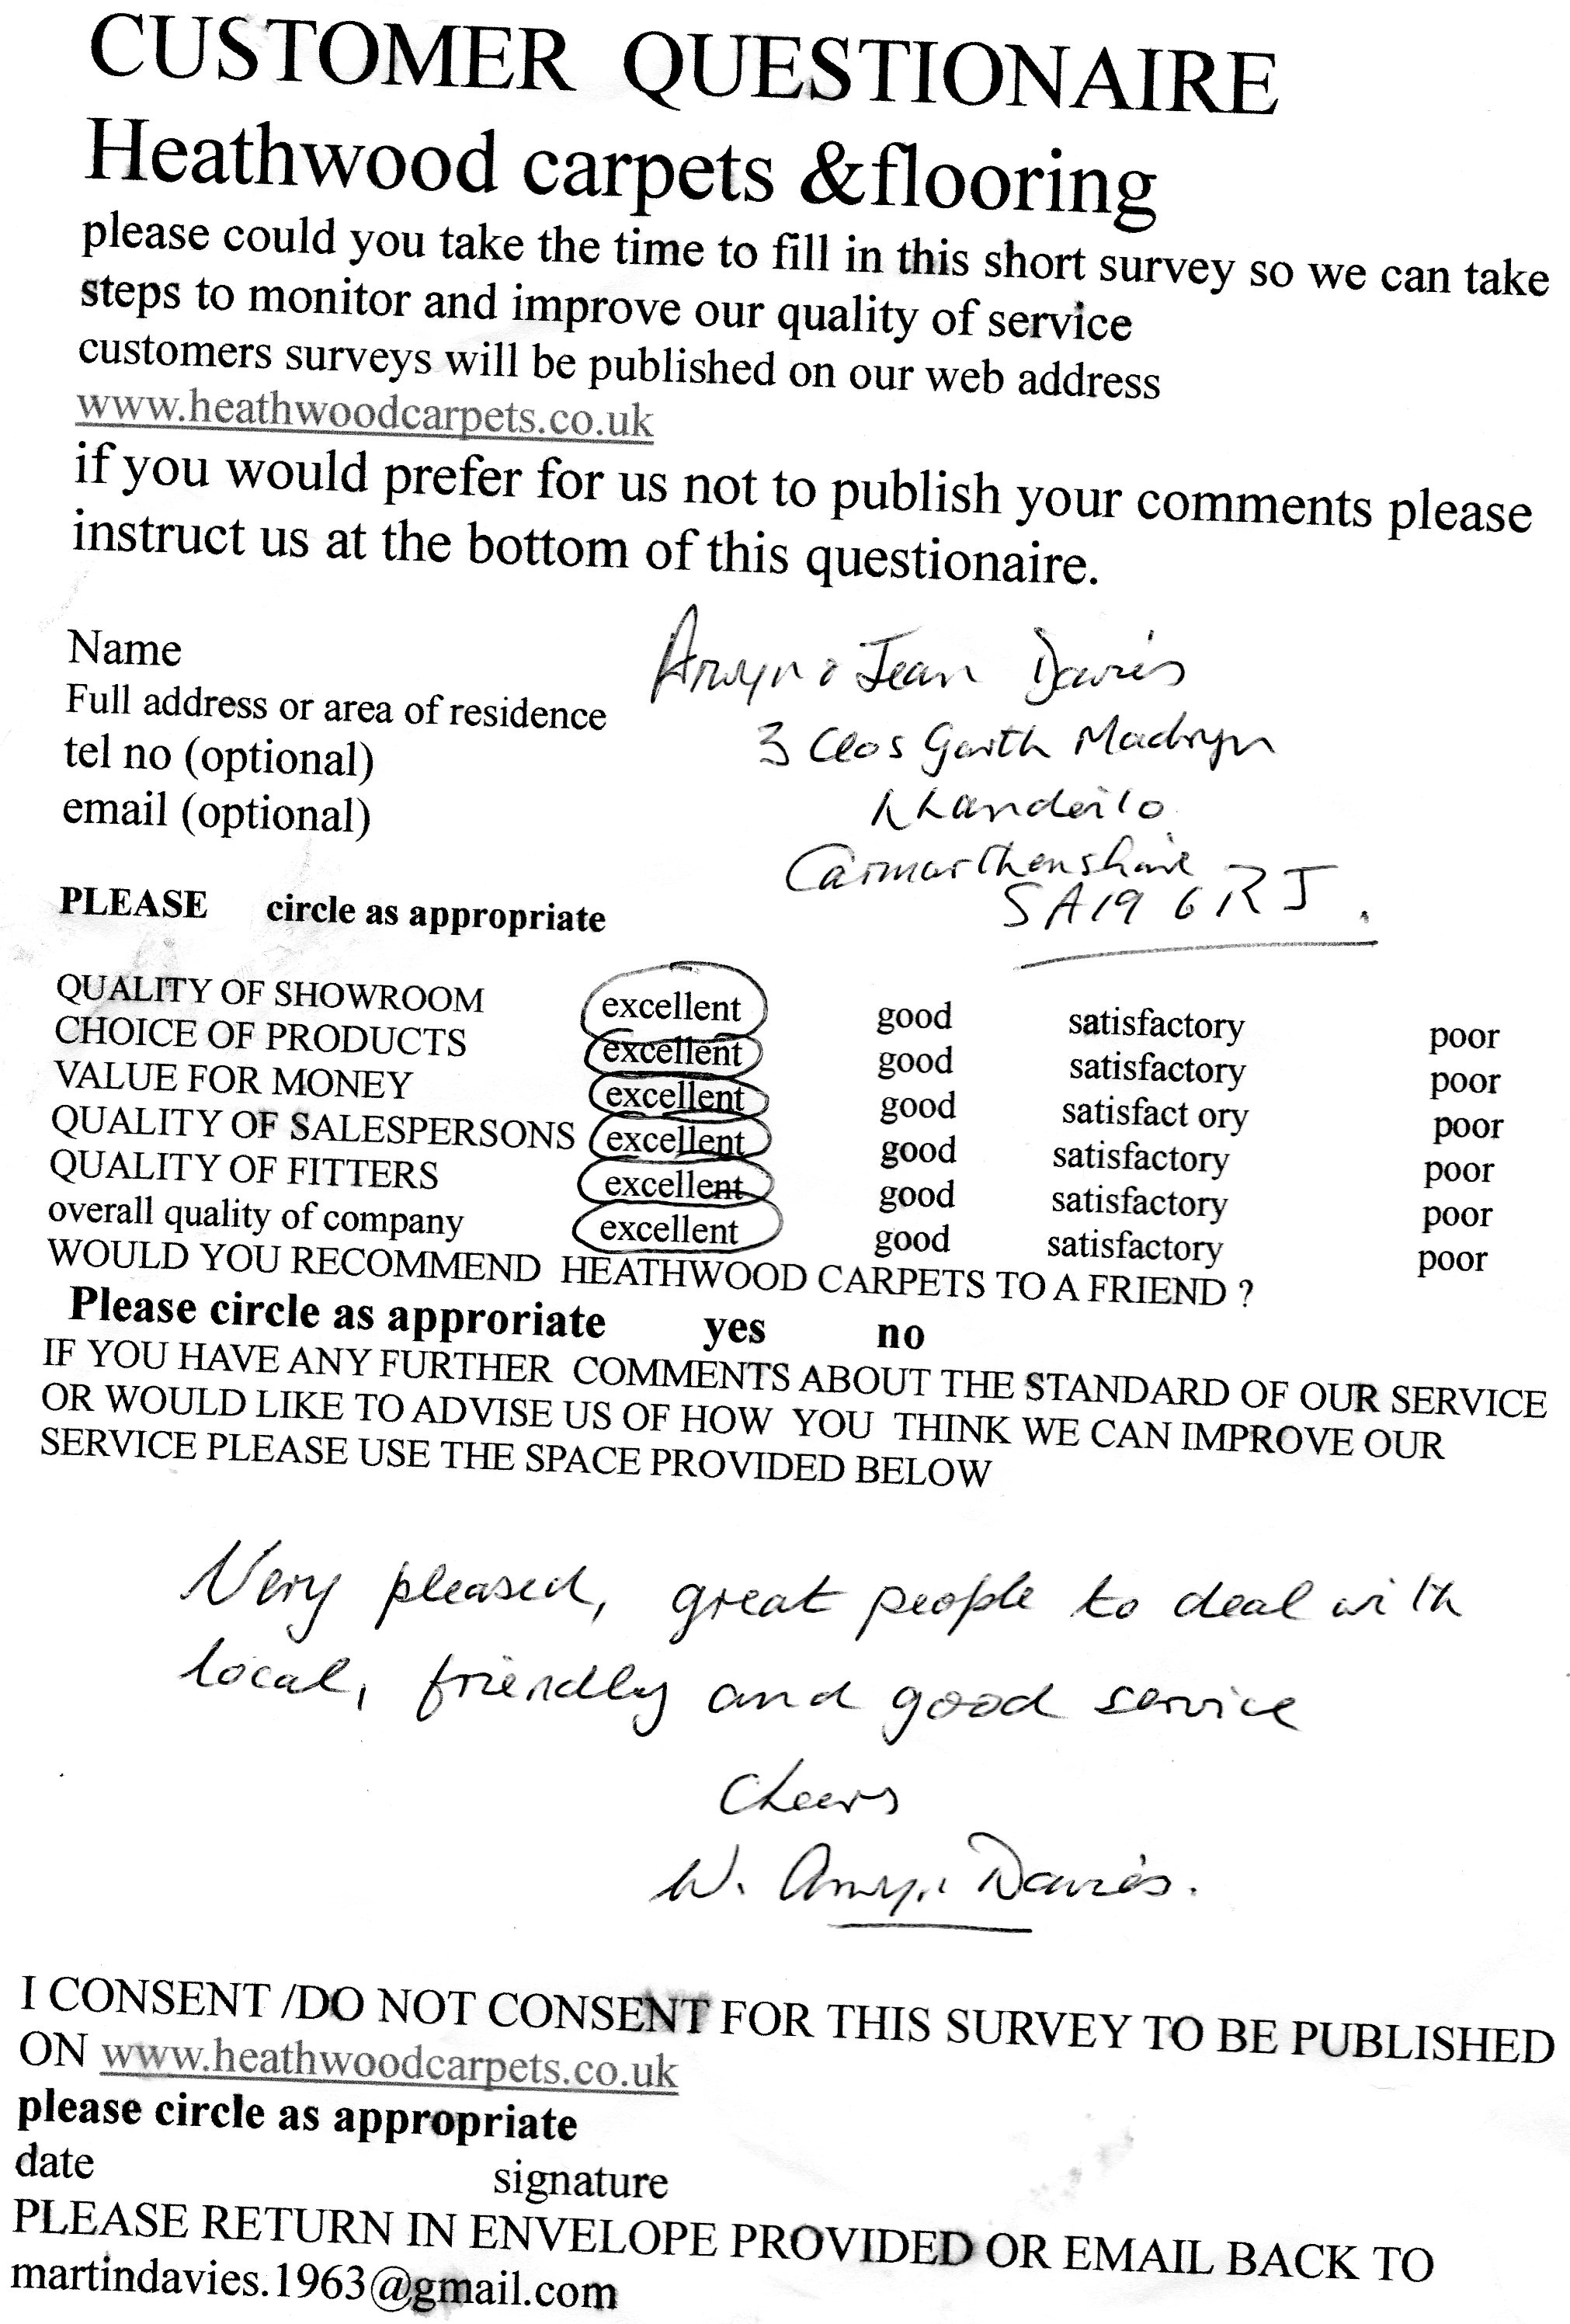 CUSTOMER QUESTIONAIRE
Heathwood carpets &flooring
please could you take the time to fill in this short survey so we can take
steps to monitor and improve our quality of service
customers surveys will be published on our web address
www.heathwoodcarpets.co.uk
if you would prefer for us not to publish your comments please
instruct us at the bottom of this questionaire.
Name Arwyn & Jean Davies
Full address or area of residence 3 Clos Garth Madryn
tel no (optional) Llandeilo
email (optional) Carmarthenshire
SA19 6RJ.
PLEASE circle as appropriate
QUALITY OF SHOWROOM excellent good satisfactory poor
CHOICE OF PRODUCTS excellent good satisfactory poor
VALUE FOR MONEY excellent good satisfact ory poor
QUALITY OF SALESPERSONS excellent good satisfactory poor
QUALITY OF FITTERS excellent good satisfactory poor
overall quality of company excellent good satisfactory poor
WOULD YOU RECOMMEND HEATHWOOD CARPETS TO A FRIEND ?
Please circle as approriate yes no
IF YOU HAVE ANY FURTHER COMMENTS ABOUT THE STANDARD OF OUR SERVICE
OR WOULD LIKE TO ADVISE US OF HOW YOU THINK WE CAN IMPROVE OUR
SERVICE PLEASE USE THE SPACE PROVIDED BELOW
Very pleased, great people to deal with
local, friendly and good service
Cheers
W. Arwyn Davies.
I CONSENT /DO NOT CONSENT FOR THIS SURVEY TO BE PUBLISHED
ON www.heathwoodcarpets.co.uk
please circle as appropriate
date signature
PLEASE RETURN IN ENVELOPE PROVIDED OR EMAIL BACK TO
martindavies.1963@gmail.com